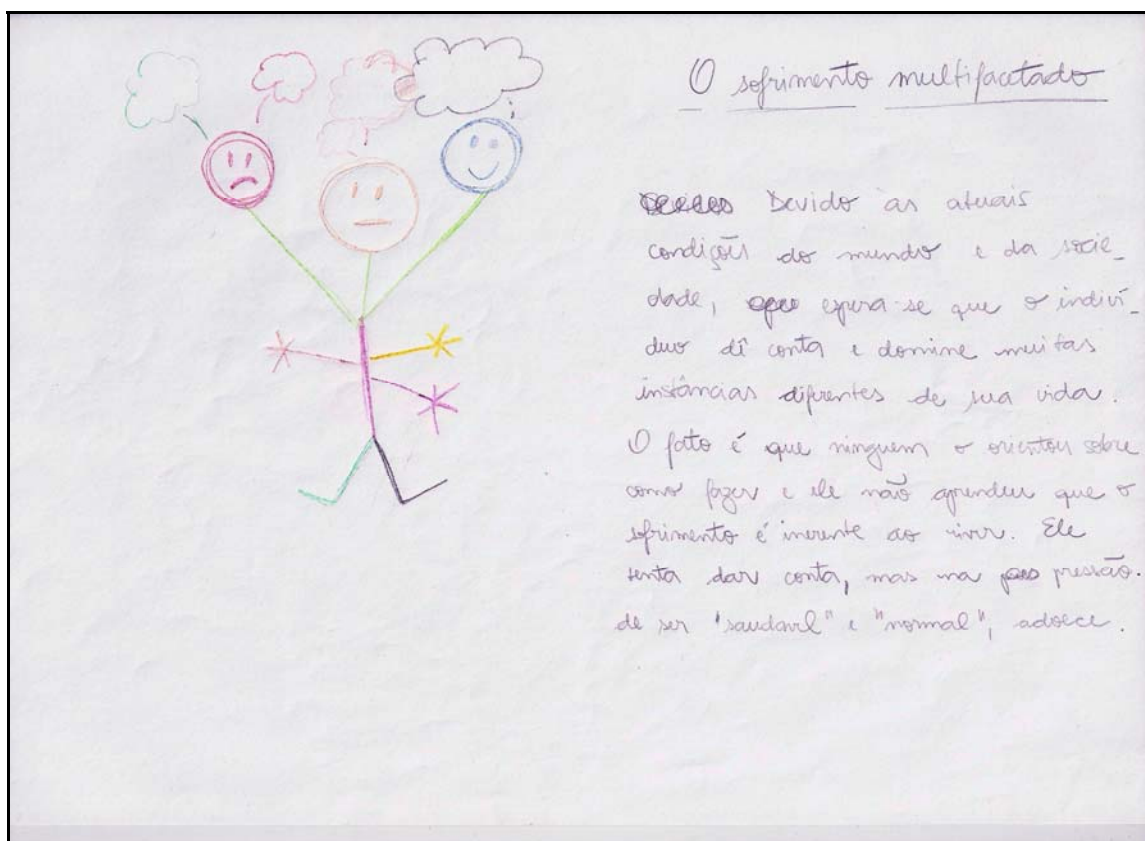 O sofrimento multifacetado
Devido às atuais
condições do mundo e da socie_
dade, espera-se que o indiví_
duo dê conta e domine muitas
instâncias diferentes de sua vida.
O fato é que ninguem o orientou sobre
como fazer e ele não aprendeu que o
sofrimento é inerente ao viver. Ele
tenta dar conta, mas na pressão
de ser "saudavel" e "normal", adoece.